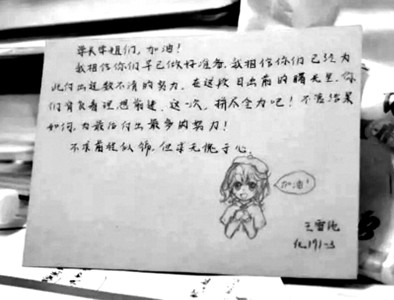 学长学姐们，加油！
我相信你们早已做好准备，我相信你们已经为
此付出过数不清的努力。在这段日出前的曙光里，你
们背负着理想前进。这一次，拼尽全力吧！不管结果
如何，为最后付出最多的努力！
不求前程似锦，但求无愧于心。
加油！
王雪纯